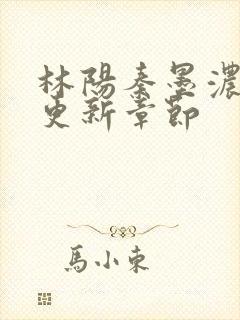 林陽秦墨濃
更新章節
馬小東